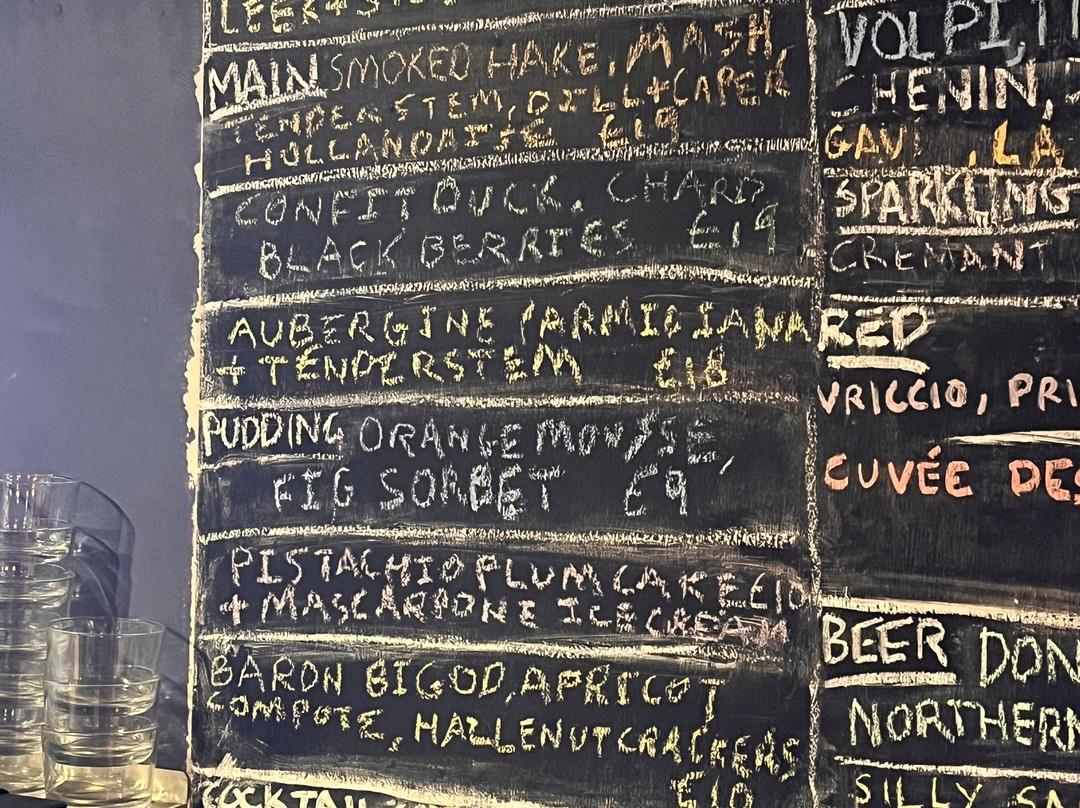 MAIN SMOKED HAKE, MASH,
TENDERSTEM, DILL + CAPER
HOLLANDAISE £19
CONFIT DUCK, CHARD,
BLACKBERRIES £19
AUBERGINE PARMIGIANA
+ TENDERSTEM £18
PUDDING ORANGE MOUSSE,
FIG SORBET £9
PISTACHIO PLUM CAKE £10
+ MASCARPONE ICE CREAM
BARON BIGOD, APRICOT
COMPOTE, HAZLENUT CRACKERS
£10
COCKTAIL
VOLPI,
CHENIN,
GAVI, LA
SPARKLING
CREMANT
RED
VRICCIO, PRI
CUVÉE DES
BEER DON
NORTHERN
SILLY SA